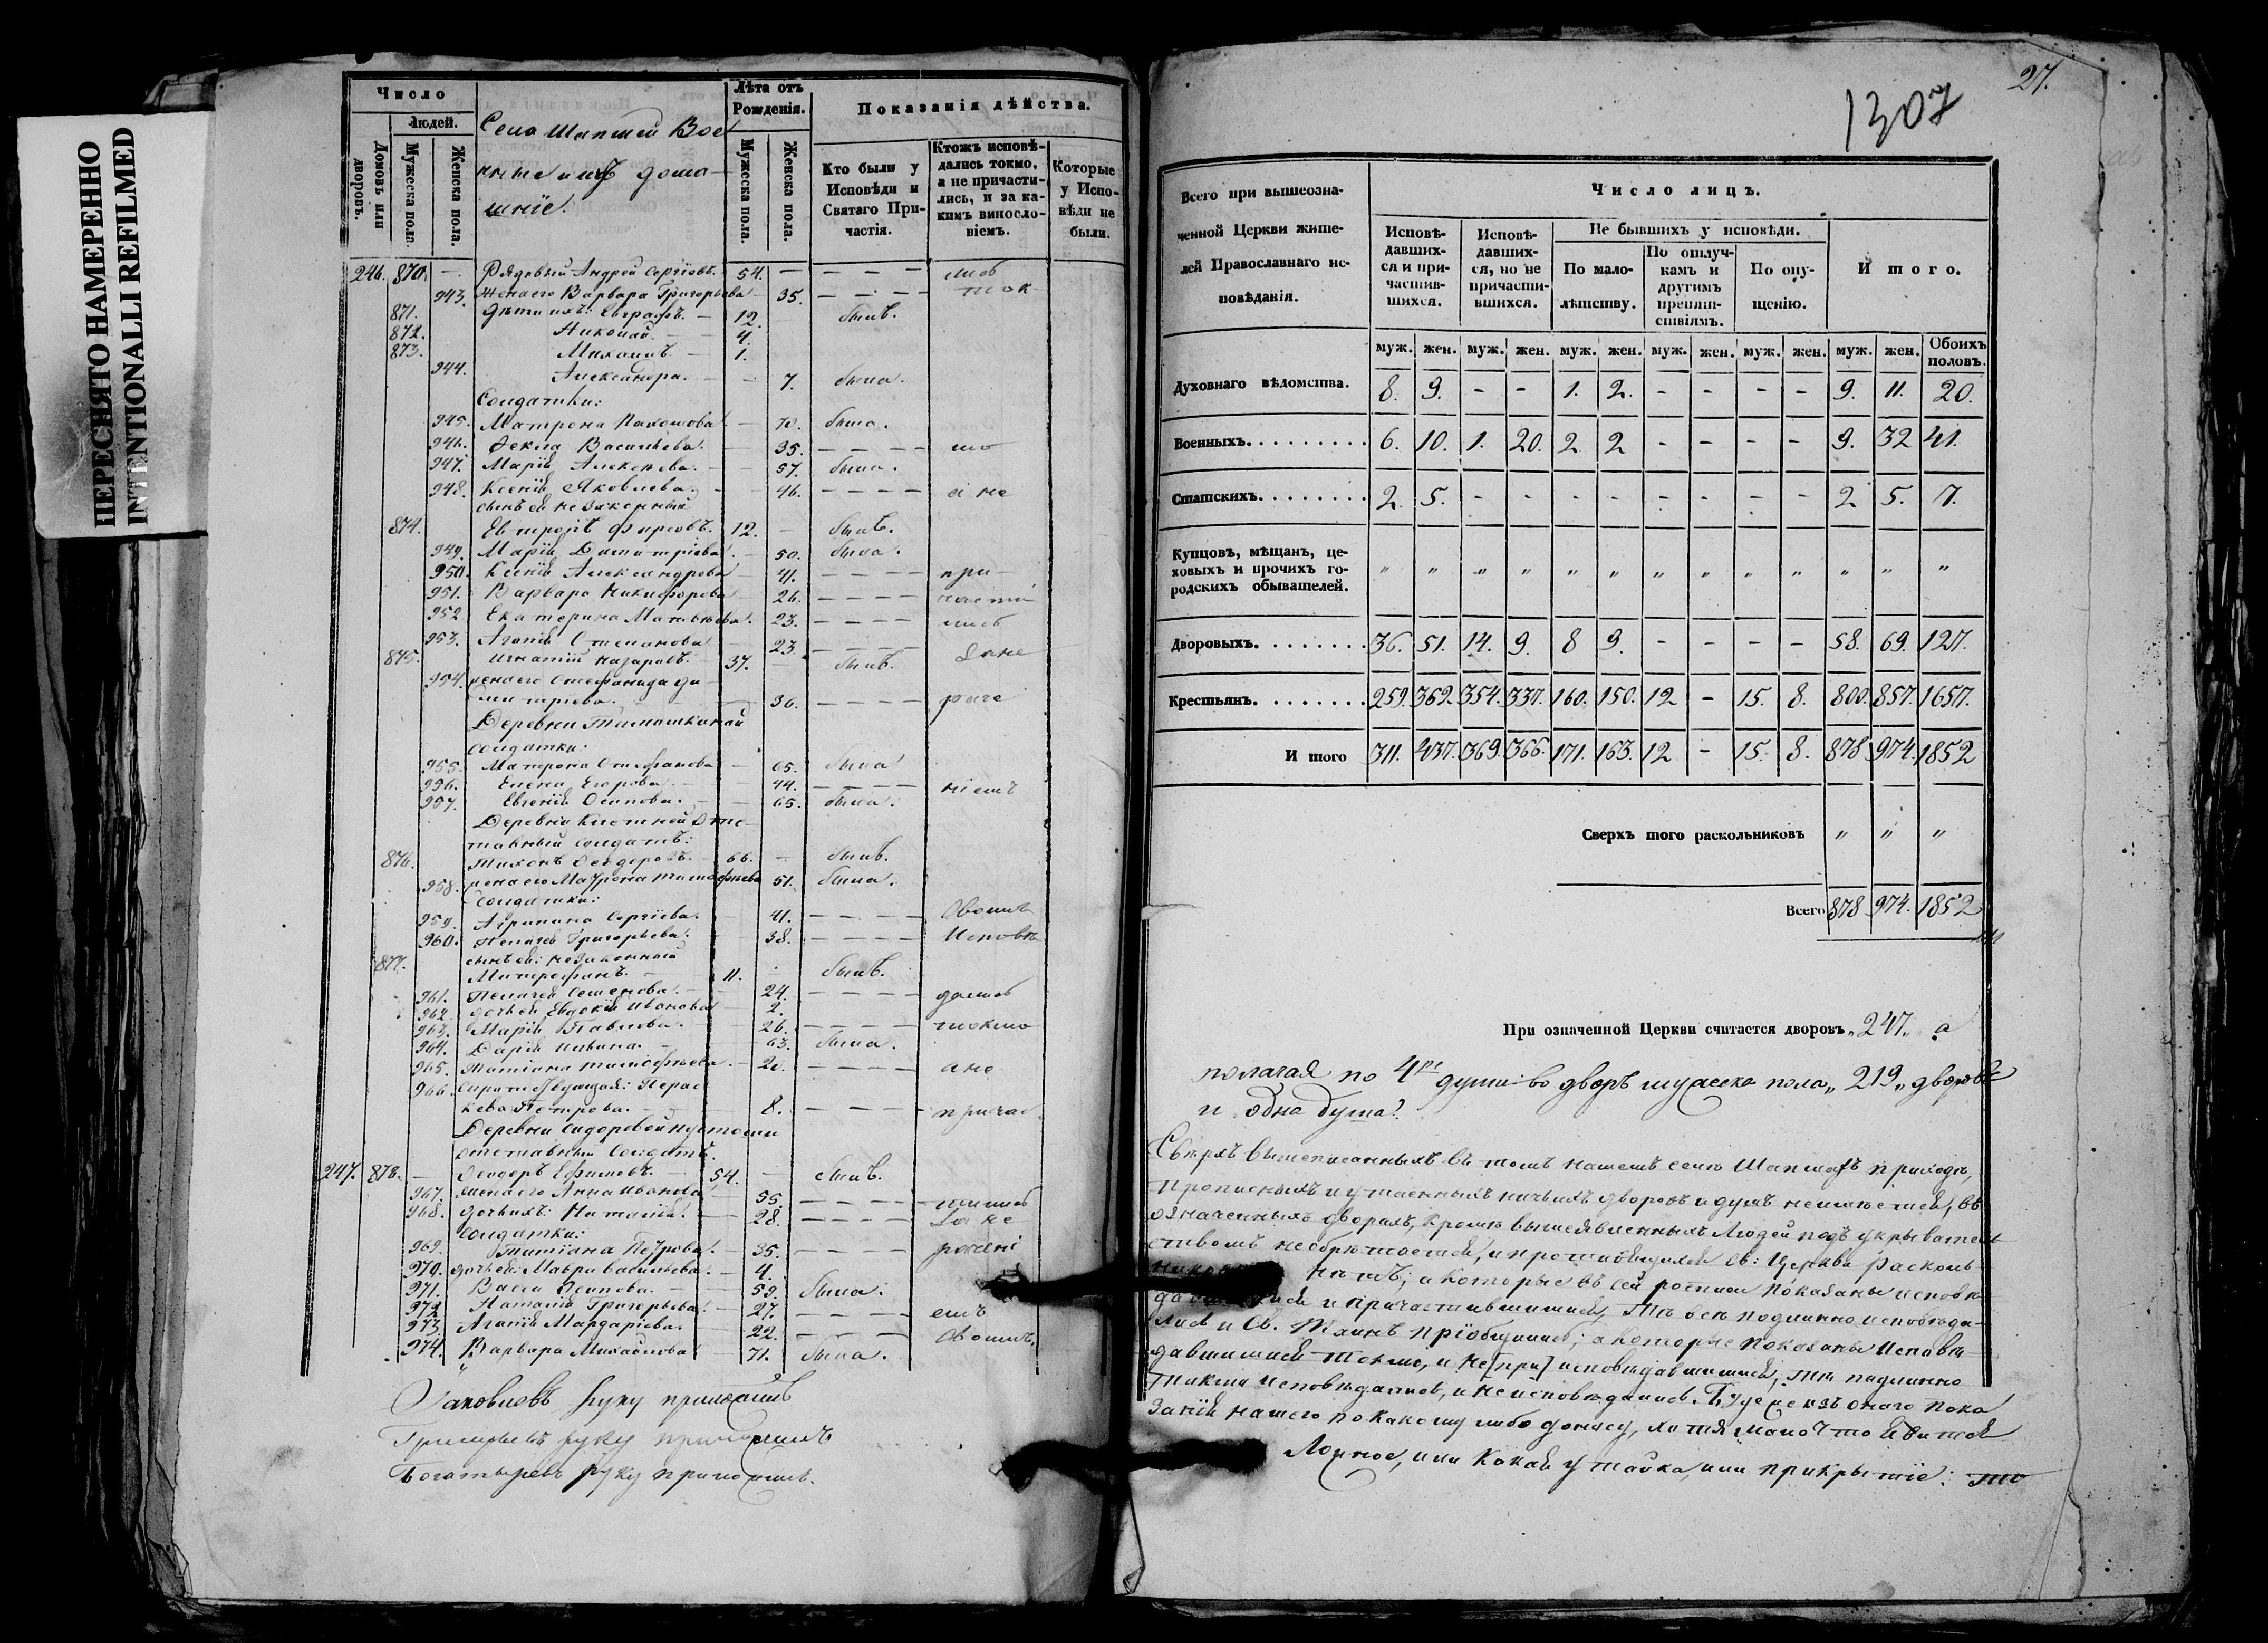 ПЕРЕСНЯТО НАМЕРЕННО
INTENTIONALLI REFILMED
Число
Людей.
Домовъ или дворовъ.
Мужеска пола.
Женска пола.
Села Шапшей Вое
нные ихъ дома
шніе.
Лѣта отъ Рожденія.
Мужеска пола.
Женска пола.
Показанія дѣйства.
Кто были у Исповѣди и Святаго При-частія.
Ктожъ исповѣ-дались токмо, а не причасти-лись, и за ка-кимъ винословіемъ.
Которые у Испо-вѣди не были.
246. 870. — Рядовый Андрей Сергіевъ. 54. — — — —
943. Жена его Варвара Григорьева 35. — — — ток
871. Дѣти ихъ: Евграфъ. — 12. былъ.
872. Николай. — 4.
873. Михаилъ. — 1.
944. Александра. — — 7. была.
Солдатки:
945. Матрона Пахомова — 70. была.
946. Ѳекла Васильева. — 35. — — — — мо
947. Марія Алексѣева. — 57. была.
948. Ксенія Яковлева. — — 46. — — — — а не
сынъ ея незаконный
874. 12. — былъ.
949. Марія Димитріева. — 50. была.
950. Ксенія Александрова 41. — — — — при
951. Варвара Никифорова — 26. — — — — части
952. Екатерина Матвѣева. 23. — — — — лись
953. Агапія Степанова 23. — — — —
875. Игнатій Назаровъ. — 37. — былъ. за не
954. жена его Стефанида Ди
митріева. — 36. — — — — раче
Деревни Тимошкиной
солдатки:
955. Матрона Стефанова — 65. была
956. Елена Егорова. — 44. — — — — ніемъ
957. Евгенія Осипова. — — 65. была.
Деревни Клетней Отс
тавный солдатъ:
876. Тихонъ Ѳеодоровъ. — 66. — былъ.
958. жена его Матрона Тимофѣева 51. была.
Солдатки:
959. Агрипина Сергіева. — 41. — — — — Овомъ
960. Пелагея Григорьева. — 38. — — — — Исповѣ
877. сынъ ея: незаконный
Митрофанъ. — 11. — былъ.
961. Пелагея Семенова. — 24. — — — — дались
962. дочь ея Евдокія Иванова 2.
963. Марія Павлова. — 26. — — — — токмо
964. Дарія — 63. была.
965. Татіана Тимофѣева. — 20. — — — — а не
966. Парас
кева Петрова. — 8. — — — — причас
Деревни Сидоровой пустоши
отставный Солдатъ.
247. 878. — Ѳеодоръ Ефимовъ. — 54. — былъ.
967. жена его Анна Иванова — 55. — — — — тились
968. дочь ихъ: Наталія. — 28. — — — — за не
солдатки:
969. Татіана Петрова. — 35. — — — — рачені
970. дочь ея: Мавра Васильева. — 4.
971. Васса Осипова. — 59. была.
972. Наталія Григорьева. — 27. — — — емъ
973. Агапія Мардаріева. — 22. — — — Овомъ.
974. Варвара Михайлова — 71. была.
Яковлевъ руку приложилъ
Григорьевъ руку приложилъ
Богатыревъ руку приложилъ.
27.
1307
Всего при вышеозна-
ченной Церкви жите-
лей Православнаго ис-
повѣданія.
Число лицъ.
Исповѣ-давших-ся и при-частив-шихся.
Исповѣ-давших-ся, но не причасти-вшихся.
Не бывшихъ у исповѣди.
По мало-лѣтству.
По отлуч-камъ и другимъ препят-ствіямъ.
По опу-щенію.
Итого.
муж. жен. муж. жен. муж. жен. муж. жен. муж. жен. муж. жен. Обоихъ половъ.
Духовнаго вѣдомства. 8. 9. - - 1. 2. - - - - 9. 11. 20.
Военныхъ. 6. 10. 1. 20. 2. 2 - - - - 9. 32 41.
Статскихъ. 2. 5. - - - - - - - - 2 5. 7.
Купцовъ, мѣщанъ, це-
ховыхъ и прочихъ го-
родскихъ обывателей. " " " " " " " " " " " " "
Дворовыхъ. 36. 51. 14. 9. 8 9. - - - - 58. 69. 127.
Крестьянъ. 259. 362. 354. 337. 160. 150. 12 - 15. 8. 800. 857. 1657.
Итого 311. 437. 369. 366. 171. 163. 12 - 15. 8. 878 974. 1852
Сверхъ того раскольниковъ " " "
Всего 878 974. 1852
При означенной Церкви считается дворовъ „247. а
полагая по 4ре души во дворъ мужеска пола „219„ дворовъ
и одна душа.
Сверхъ вышеписанныхъ въ томъ нашемъ селѣ Шапшахъ приходѣ,
прописныхъ и утаенныхъ ничьихъ дворовъ и душъ неимѣется, въ
означенныхъ дворахъ, кромѣ вышеявленныхъ Людей подъ укрыватель
ствомъ необрѣтается, и противящихся Св: Церкви Расколь
нѣтъ; а которые въ сей росписи показаны исповѣ
и причастившимися, Тѣ всѣ подлинно исповѣда
лись и Св. Таинъ пріобщились; а которые показаны Исповѣ
давшимися токмо, и не [при] исповѣдавшимися, тѣ подлинно
токмо исповѣдались, и неисповѣдались. Буде же изъ онаго пока
занія нашего по какому либо доносу, хотя мало что явится
Ложное, или какая утайка, или прикрытіе: то